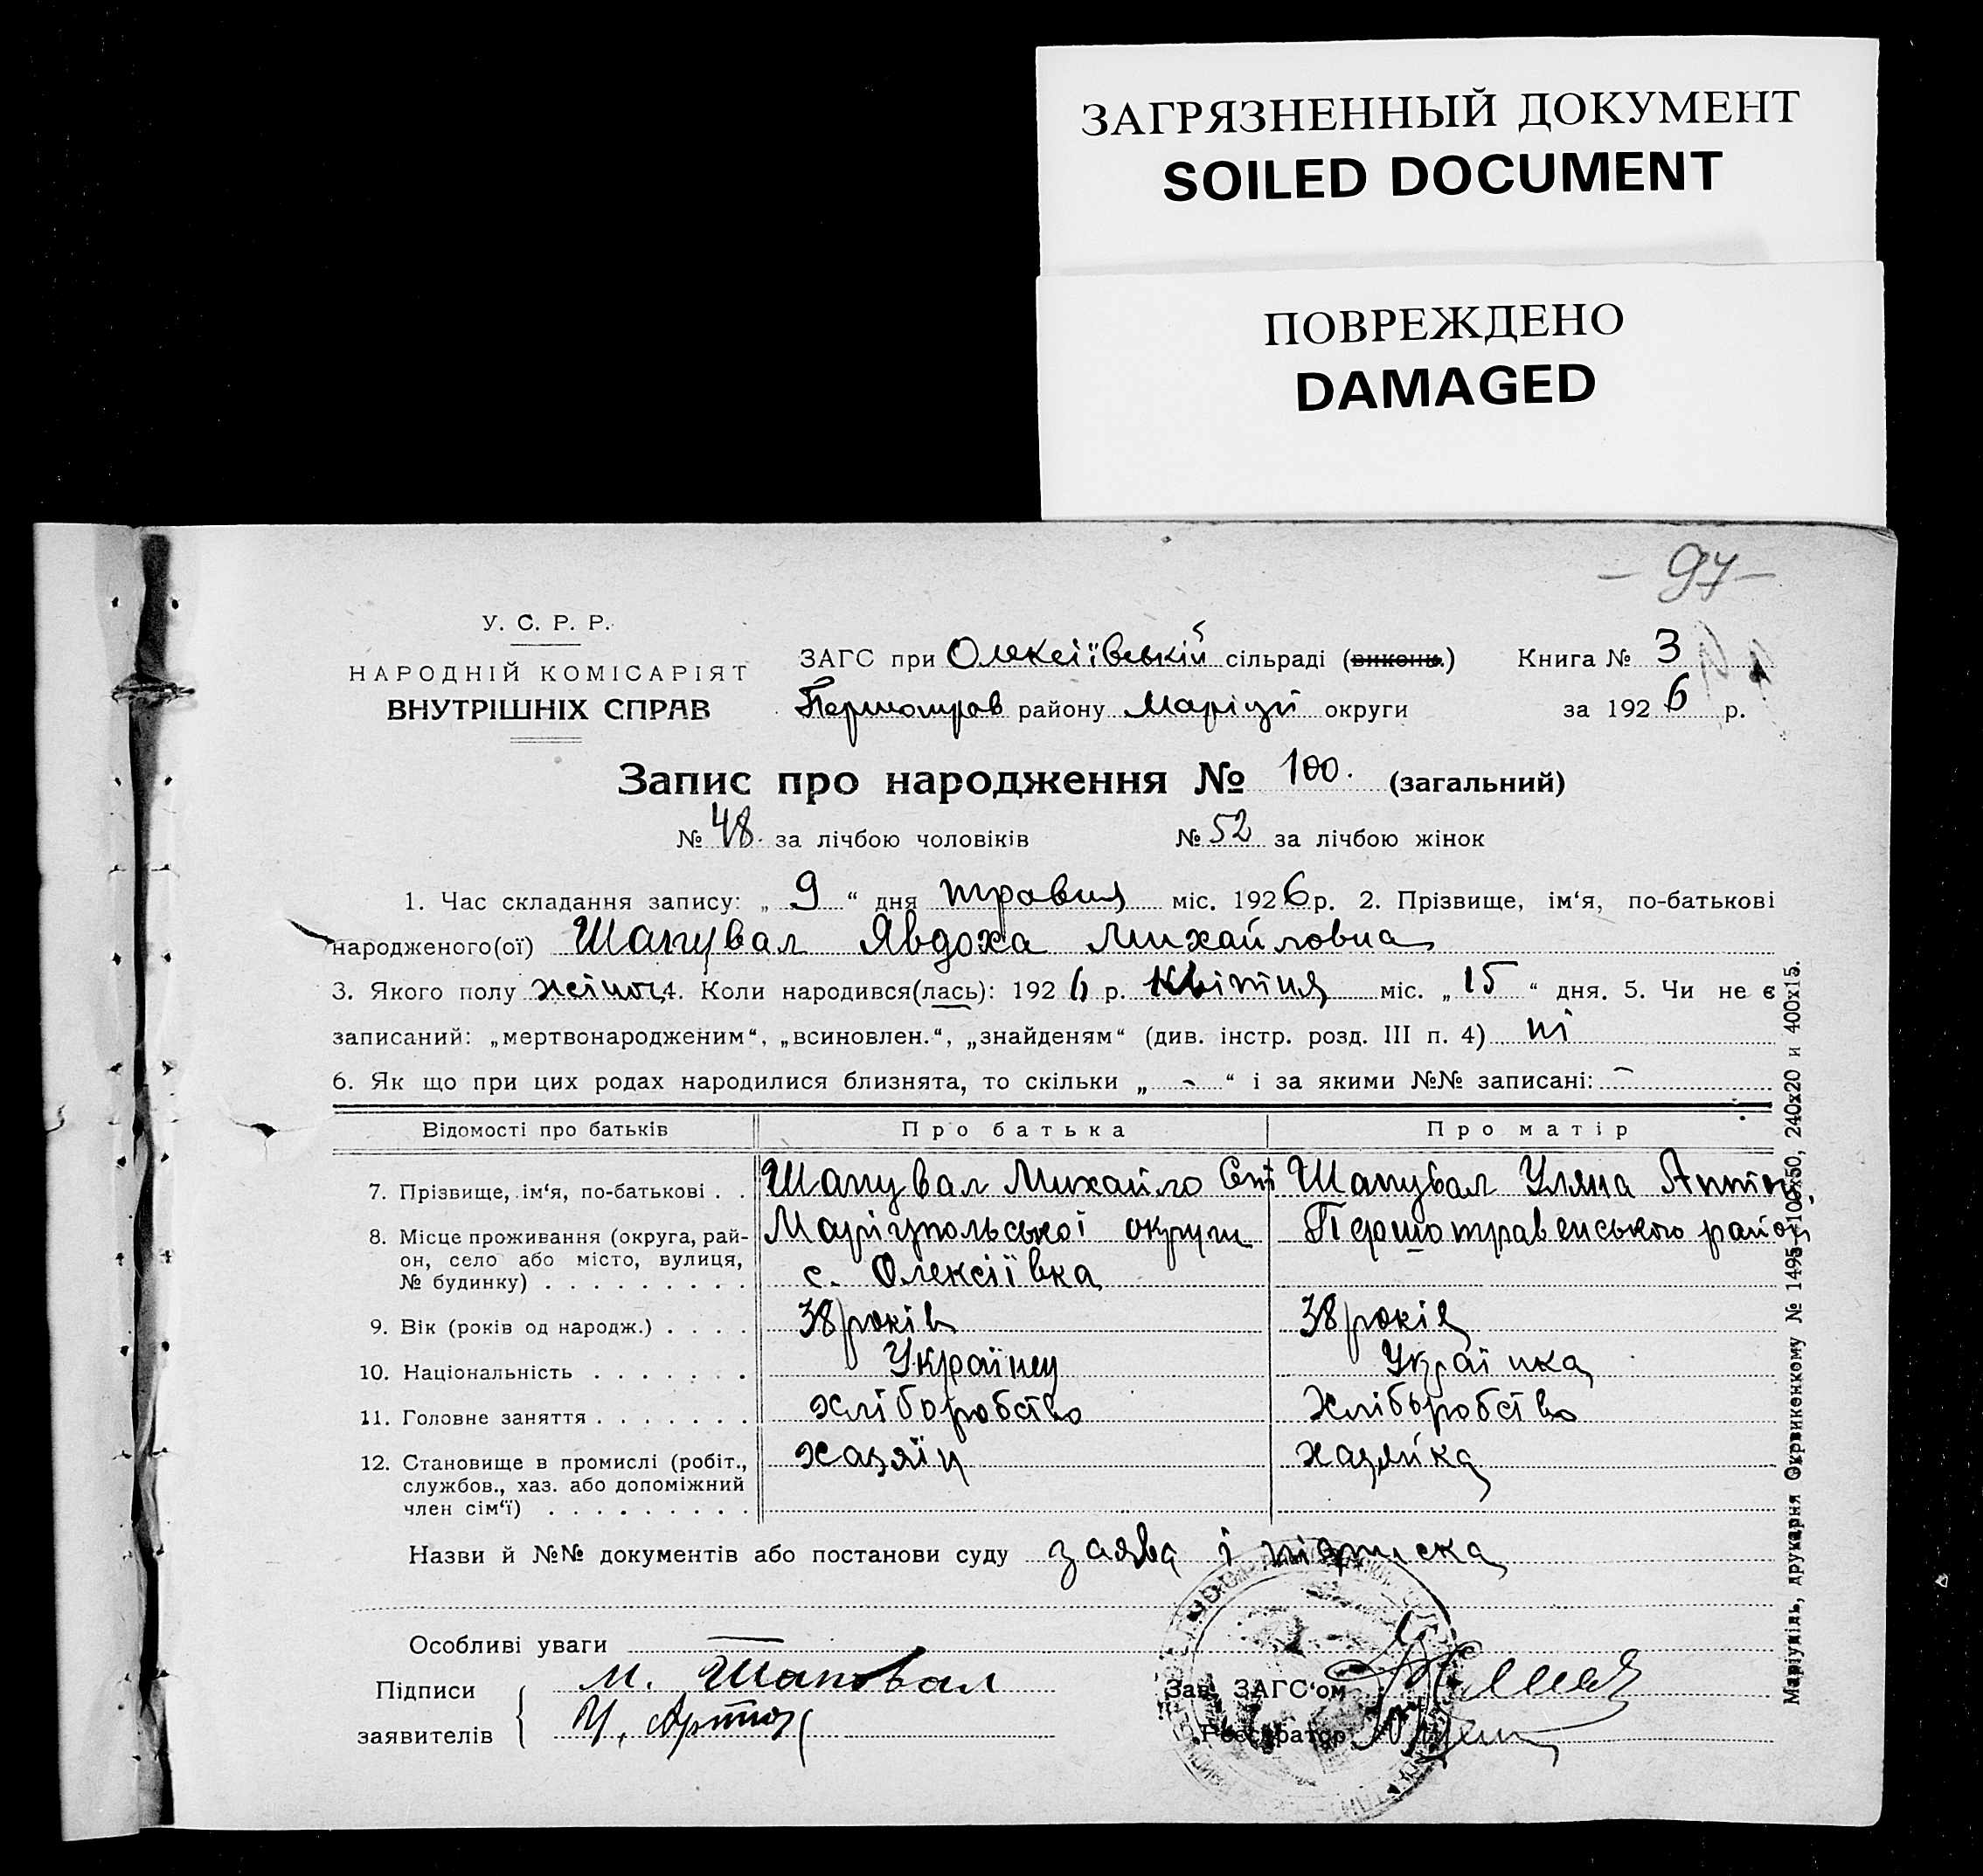 ЗАГРЯЗНЕННЫЙ ДОКУМЕНТ
SOILED DOCUMENT
ПОВРЕЖДЕНО
DAMAGED
– 97 –
У. С. Р. Р.
НАРОДНІЙ КОМІСАРІЯТ
ВНУТРІШНІХ СПРАВ
ЗАГС при Олексіївській сільраді (викони.) Книга № 3
Першотрав району Маріуп округи за 1926 р.
Запис про народження № 100. (загальний)
№ 48. за лічбою чоловіків № 52 за лічбою жінок
1. Час складання запису: „ 9 “ дня травня міс. 1926 р. 2. Прізвище, ім‘я, по-батькові
народженого(ої) Шапувал Явдоха Михайловна
3. Якого полу жіноч. 4. Коли народився(лась): 1926 р. квітня міс. „ 15 “ дня. 5. Чи не є
записаний: „мертвонародженим“, „всиновлен.“, „знайденям“ (див. інстр. розд. III п. 4) ні
6. Як що при цих родах народилися близнята, то скільки „ - “ і за якими №№ записані: -
Відомості про батьків Про батька Про матір
7. Прізвище, ім‘я, по-батькові . . Шапувал Михайло Шапувал Уляна
8. Місце проживання (округа, рай- Маріупольської округи Першотравенського району
он, село або місто, вулиця, с. Олексіївка
№ будинку) . . . . . . . . .
9. Вік (років од народж.) . . . . 38 років 38 років
10. Національність . . . . . . . Українец Українка
11. Головне заняття . . . . . . . хліборобство хліборобство
12. Становище в промислі (робіт., хазяїн хазяйка
службов., хаз. або допоміжний
член сім‘ї) . . . . . . . . .
Назви й №№ документів або постанови суду заява і підписка
Особливі уваги —
Підписи М. Шаповал Зав. ЗАГС‘ом
заявителів Реєстратор
Маріупіль, друкарня Окрвиконкому № 1495—100х50, 240х20 и 400х15.